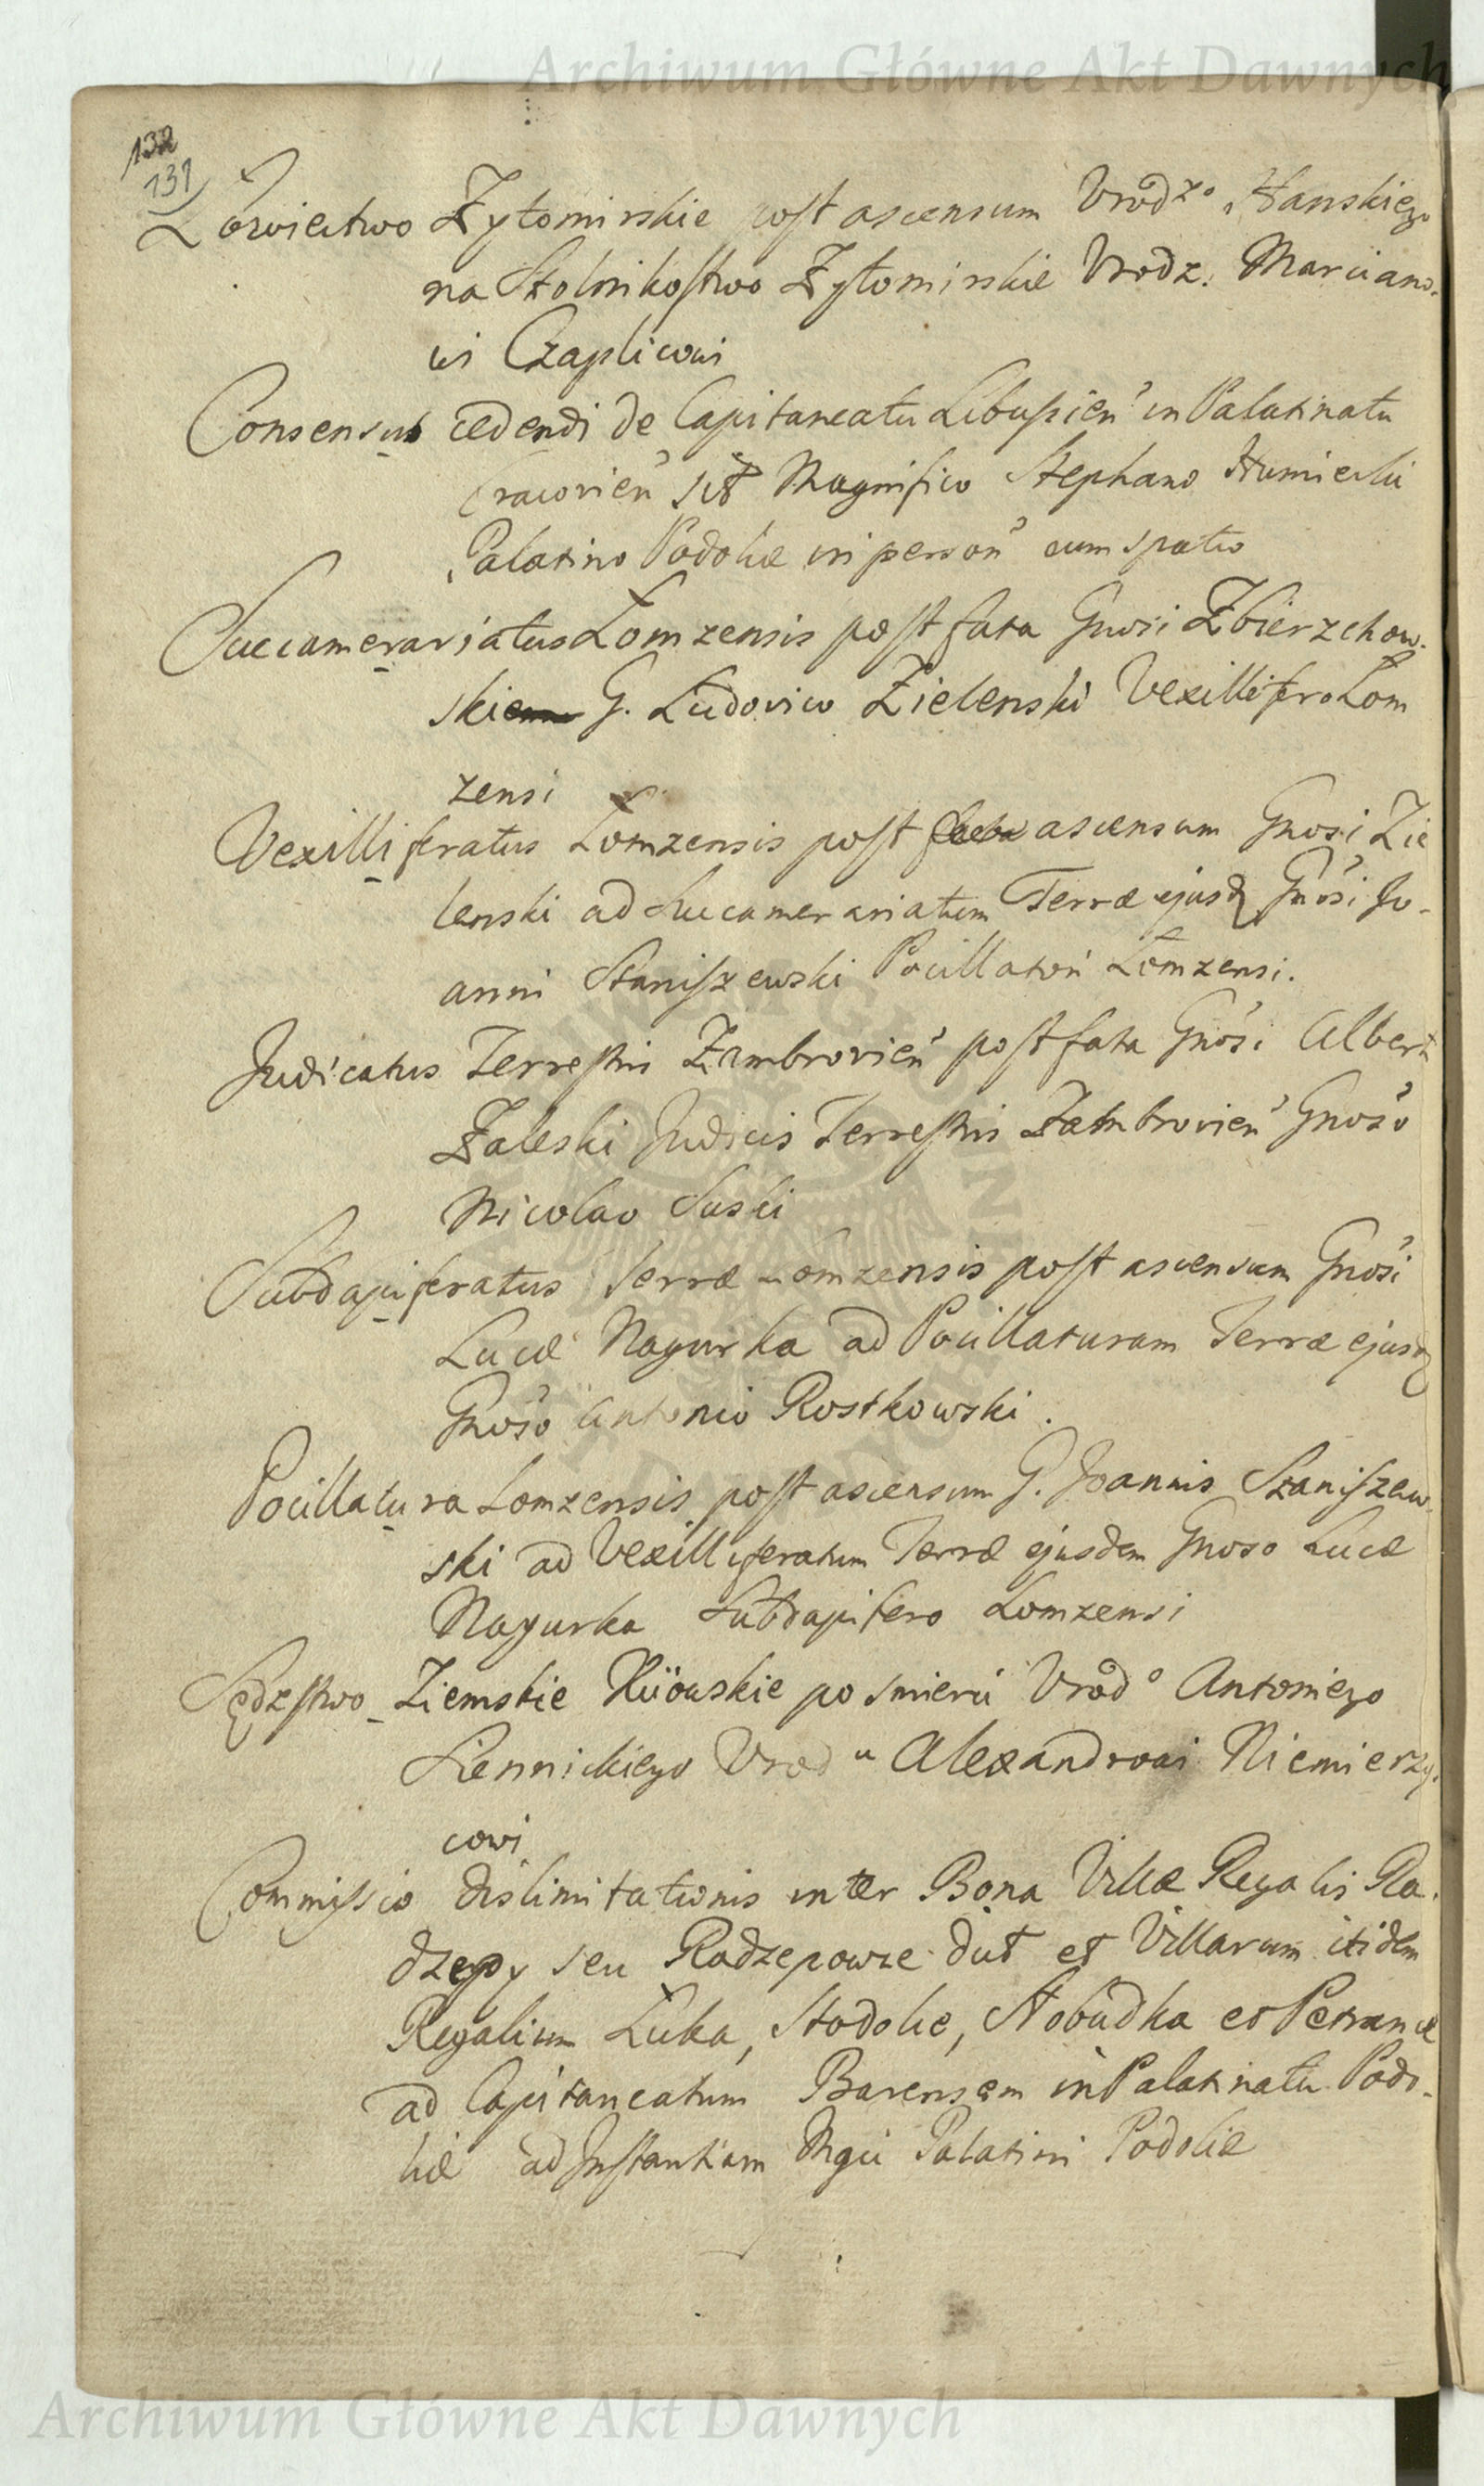 Archiwum Główne Akt Dawnych
132
131
Łowiectwo Żytomirskie post ascensum Vrodzo Hanskiego
na Stolnikostwo Żytomirskie Vrodz. Marciano-
wi Czaplicowi
Consensus cedendi de Capitaneatu Libusien in Palatinatu
Cracovien sit Magnifico Stephano Humiecki
Palatino Podoliæ in person cum spatio
Succamerariatus Łomzensis post fata Gnosi Zbierzchow-
skiemu G. Ludovico Zielenski Vexillifero Łom
zensi
Vexilliferatus Łomzensis post fata ascensum Gnosi Zie
lenski ad Succamerariatum Terræ ejusd Gnosi Jo-
anni Staniszewski Pocillatori Łomzensi.
Judicatus Terrestris Zambrovien post fata Gnosi Alberti
Zaleski Judicis Terrestris Zambrovien Gnoso
Nicolao Suski
Subdapiferatus Terræ Lomzensis post ascensum Gnosi
Lucæ Nagurka ad Pocillaturam Terræ ejusd
Gnoso Antonio Rostkowski.
Pocillatura Lomzensis post ascensum G. Joannis Staniszew-
ski ad Vexilliferatum Terræ ejusdem Gnoso Lucæ
Nagurka Subdapifero Lomzensi
Sędzstwo Ziemskie Kiiowskie po smierci Vrodo Antoniego
Lennickiego Vrod u Alexandrowi Niemierzy-
cowi
Commissio dislimitationis inter Bona Villæ Regalis Ra-
dzepy seu Radzepowze dict et Villarum itidem
Regalium Łuka, Stodolie, Słobudka et Petranie
ad Capitaneatum Barensem in Palatinatu Podo-
liæ ad Instantiam Mgci Palatini Podoliæ
Archiwum Główne Akt Dawnych